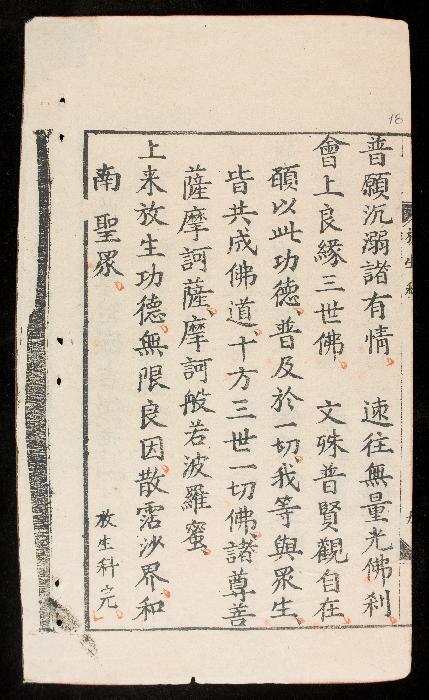 18
普願沉溺諸有情 速往無量光佛刹
會上良緣三世佛 文殊普賢觀自在
願以此功德普及於一切我等與眾生
皆共成佛道十方三世一切佛諸尊菩
薩摩訶薩摩訶般若波羅蜜
上来放生功德無限良因散霑沙界和
南聖眾
放生科完
放生科